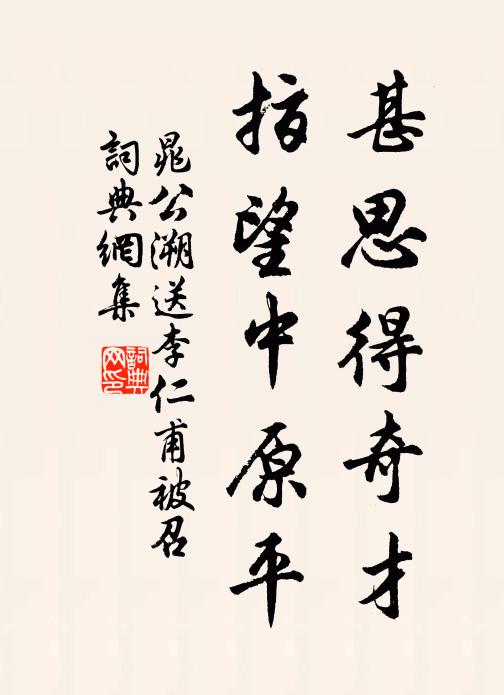 甚思得奇才
指望中原平
晁公溯送李仁甫被召
詞典網集
詞典網印